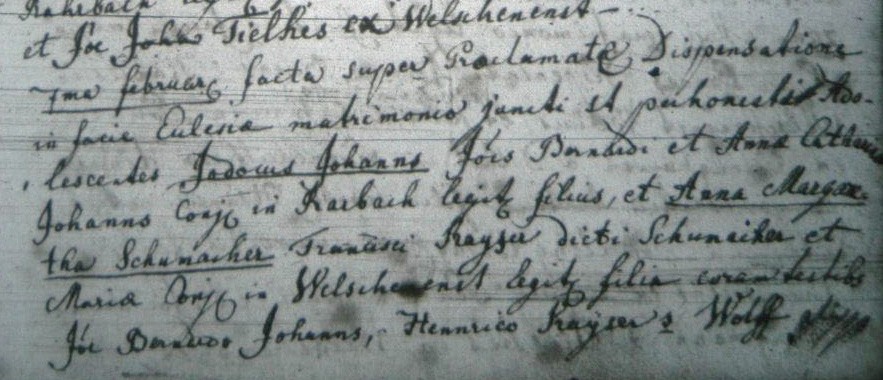 et Joe John Tielkes ex Welschenenst -
7ma februarij facta super Proclamatë Dispensatione
in facie Eclesiæ matrimonio juncti st puhonesti Ado-
lescentes Jodocus Johanns Jois Bernardi et Annæ Cathari
Johanns Conj in Rarbach legit filius, et Anna Marga-
tha Schumacher Francisci Kayser dicti Schumacher et
Mariæ Conj in Welschenenst legit filia coram testibs
Joe Bernardo Johanns, Hennrico Kaysers Wolff